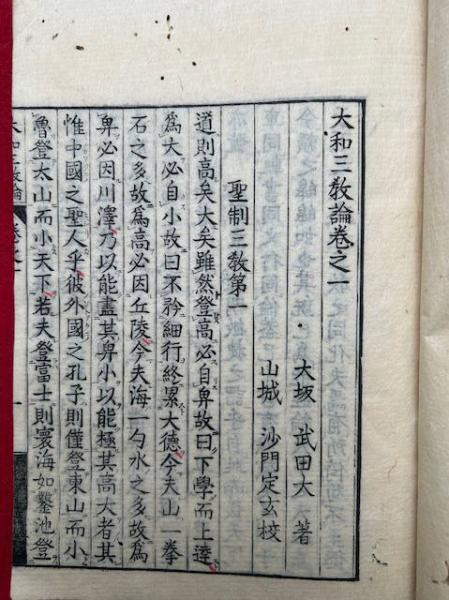 大和三教論卷之一
大坂 武田大 著
山城 沙門定玄校
聖制三教第一
道則高矣大矣雖然登高必自卑故曰下學而上達
為大必自小故曰不矜細行終累大德今夫山一拳
石之多故為高必因丘陵今夫海一勺水之多故為
卑必因川澤乃以能盡其卑小以能極其高大者其
惟中國之聖人乎彼外國之孔子則僅登東山而小
魯登太山而小天下若夫登富士則寰海如鑿池登
大和三教論 卷之一 一